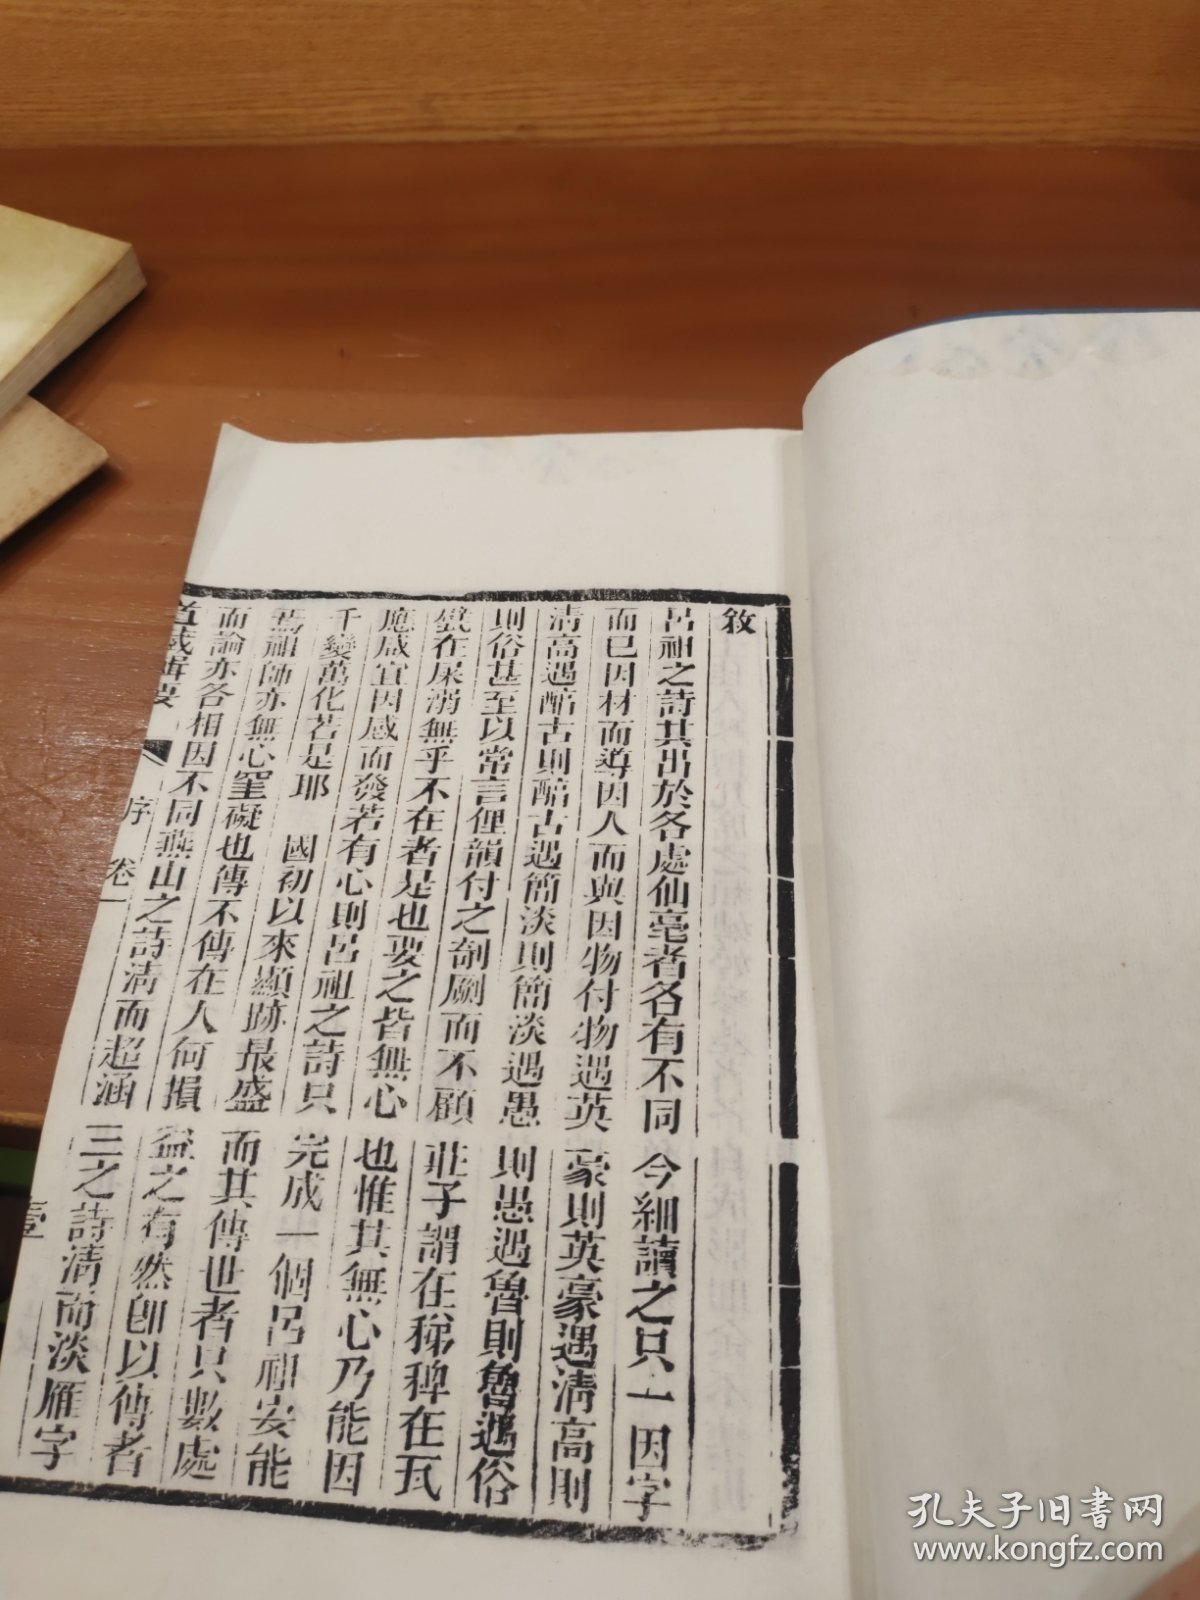 敘
呂祖之詩其出於各處仙毫者各有不同今細讀之只一因字
而已因材而導因人而與因物付物遇英豪則英豪遇清高則
清高遇醕古則醕古遇簡淡則簡淡遇愚則愚遇魯則魯遇俗
則俗甚至以常言俚韻付之剞劂而不顧莊子謂在稊稗在瓦
甓在屎溺無乎不在者是也要之皆無心也惟其無心乃能因
應咸宜因感而發若有心則呂祖之詩只完成一個呂祖安能
千變萬化若是耶 國初以來顯跡最盛而其傳世者只數處
焉祖師亦無心窒礙也傳不傳在人何損益之有然即以傳者
而論亦各相因不同燕山之詩清而超涵三之詩清而淡雁字
道藏輯要 序 卷一 壹
孔夫子旧书网
www.kongfz.com